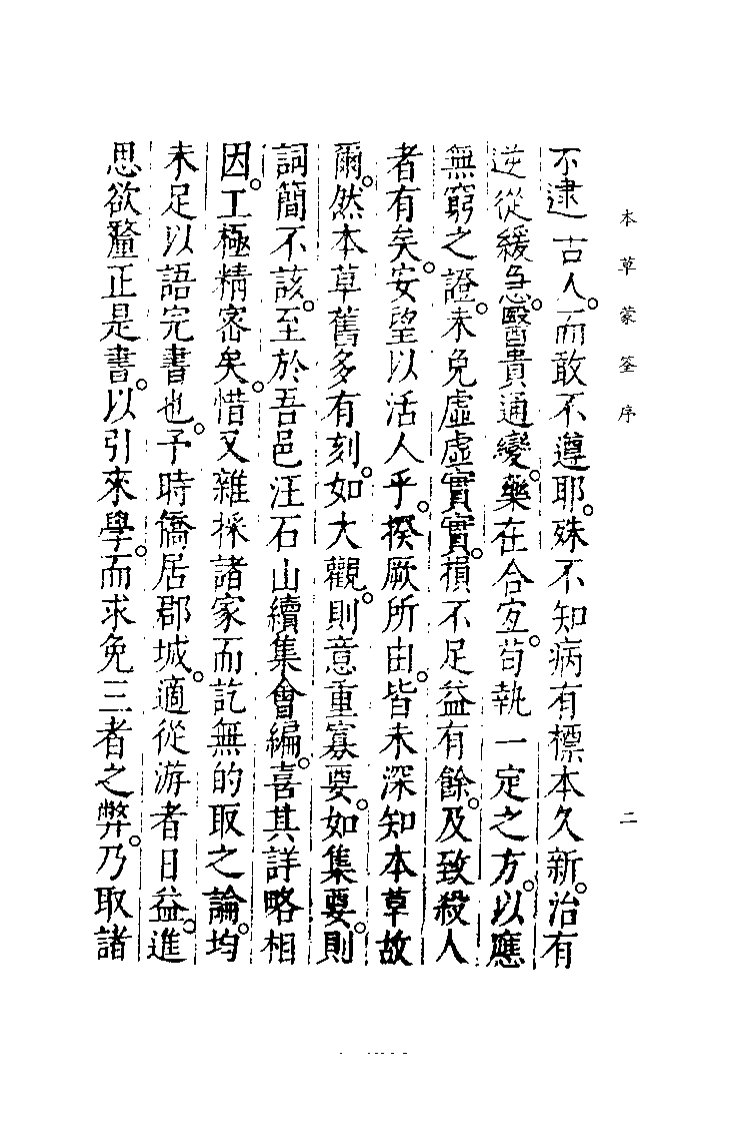 本草蒙筌序
二
不逮古人。而敢不遵耶。殊不知病有標本久新。治有
逆從緩急。醫貴通變。藥在合宜。苟執一定之方。以應
無窮之證。未免虛虛實實。損不足益有餘。及致殺人
者有矣。安望以活人乎。揆厥所由。皆未深知本草故
爾。然本草舊多有刻。如大觀。則意重寡要。如集要。則
詞簡不該。至於吾邑汪石山續集會編。喜其詳略相
因。工極精密矣。惜又雜採諸家而訖無的取之論。均
未足以語完書也。予時僑居郡城。適從游者日益。進
思欲釐正是書。以引來學。而求免三者之弊。乃取諸